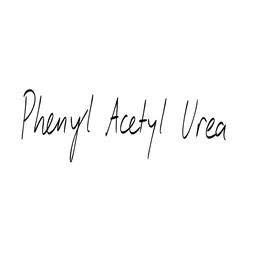 Phenyl Acetyl Urea